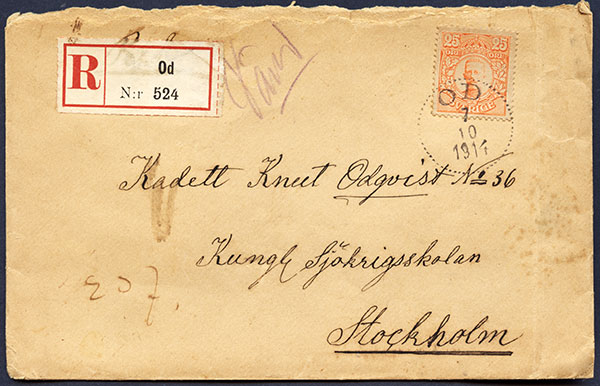 R
Od
N:r 524
25 25
SVERIGE
OD
1
10
1914
Kadett Knut Odqvist No 36
Kungl Sjökrigsskolan
Stockholm